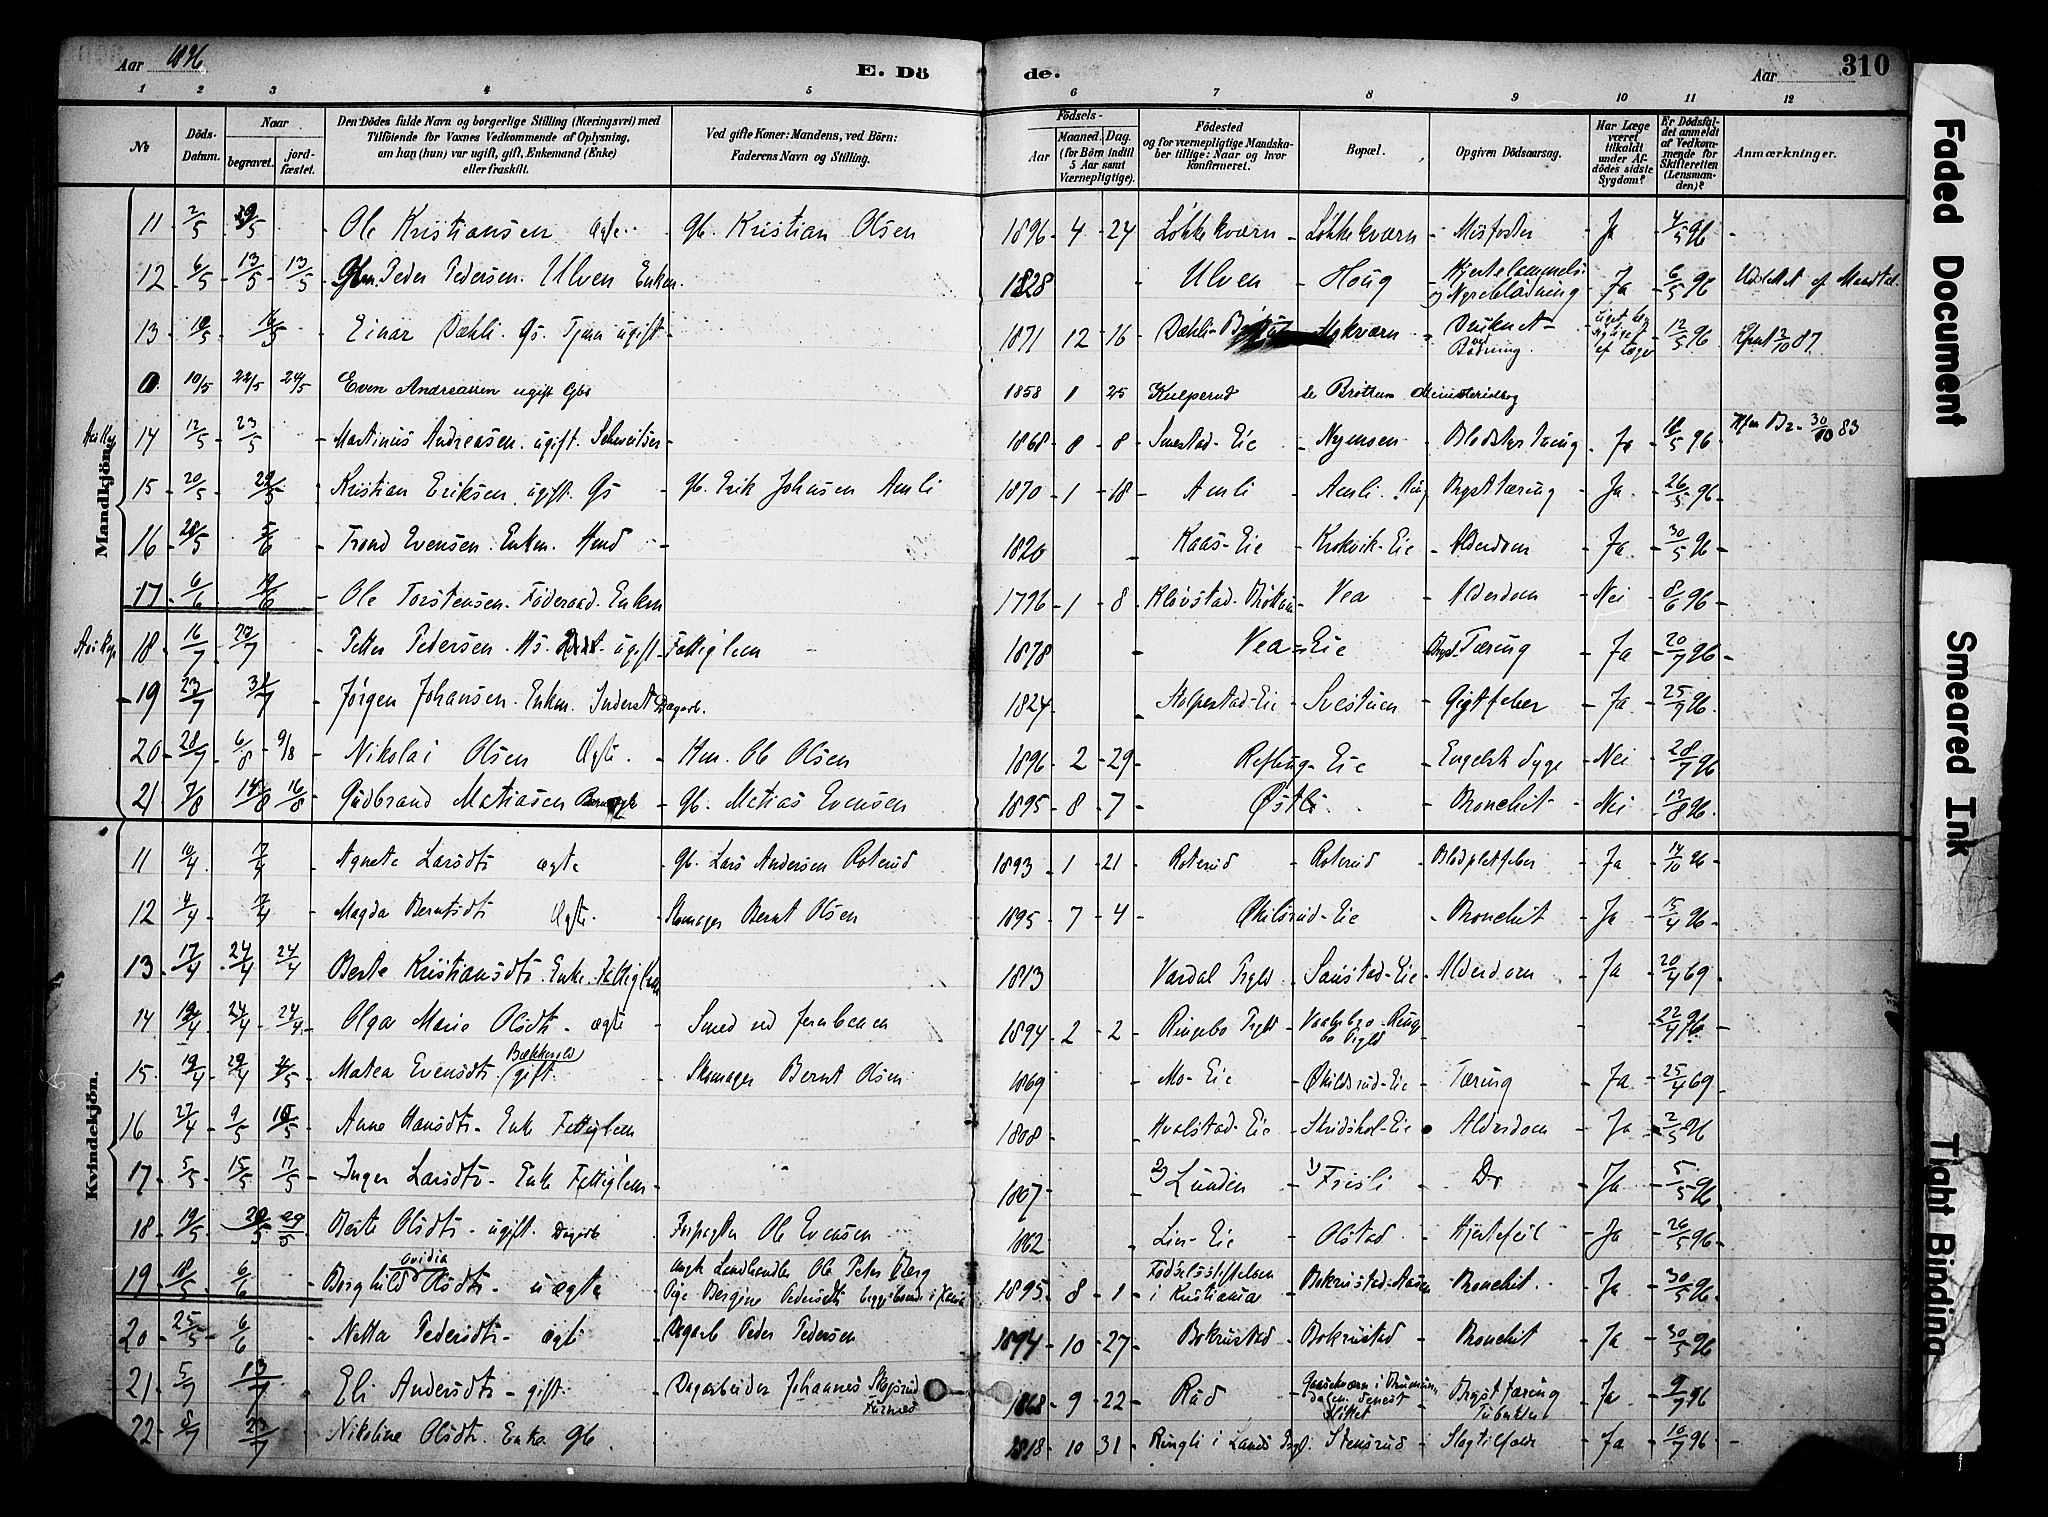 Aar 1896
E. Dö
de.
Aar
310
1 2 3 4 5 6 7 8 9 10 11 12
No
Döds-Datum.
Naar
begravet.
jordfæstet.
Den Dödes fulde Navn og borgerlige Stilling (Næringsvei) med
Tilföiende for Voxnes Vedkommende af Oplysning,
om han (hun) var ugift, gift, Enkemand (Enke)
eller fraskilt.
Ved gifte Koner: Mandens, ved Börn:
Faderens Navn og Stilling.
Födsels-
Aar
Maaned. Dag.
(for Börn indtil
5 Aar samt
Værnepligtige).
Födested
og for værnepligtige Mandska-
ber tillige: Naar og hvor
konfirmeret.
Bopæl.
Opgiven Dödsaarsag.
Har Læge
været
tilkaldt
under Af-
dödes sidste
Sygdom?
Er Dödsfal-
det anmeldt
af Vedkom-
mende for
Skifteretten
(Lensman-
den)?
Anmærkninger.
Mandkjön.
11 2/5 Ole Kristiansen Ægte Gb. Kristian Olsen 1896 - 4 - 24 Løkkekværn - Løkkekværn - Misfoster - Ja 4/5 96 -
12 6/5 - 13/5 - 13/5 Peder Pedersen Ulven Enkem. 1828 Ulven - Houg - Hjertelammelse og Nyreblødning - Ja - 6/5 96 -
13 - 10/5 16/5 - Einar Dæhli. Gs. ugift 1871 12 - 16 - Dæhli - Mokværn - Druknet ved Badning. 12/5 96
0. 10/5 22/5 24/5 Even Andreassen ugift Gbs 1858 1 25 Kulperud se Brøttum Ministerialbog
14 - 12/5 - 23/5 - Martinus Andreasen. ugift. Schweitser - 1868 - 8 - 8 - Smestad-Eie - Nyensen - Blodstyrtning - Ja - 18/5 96 - 30/10 83
15 - 20/5 - 29/5 - Kristian Eriksen. ugift. Gs - Gb. Erik Johnsen Amli 1870 - 1 - 18 - Amli - Amli - Brysttæring - Ja - 26/5 96 -
16 - 28/5 5/6 - Trond Evensen. Enkm. 1820 - Kaas-Eie - Krokvik-Eie - Alderdom - Ja - 30/5 96 -
17 - 6/6 - 19/6 - Ole Torstensen. Føderaad. Enkm 1796 - 1 - 8 Kløvstad - Vea - Alderdom - Nei - 8/6 96 -
18 - 16/7 - 22/7 - Petter Pedersen. Hs. ugift - Fattiglem - 1878 Vea-Eie Bryst-Tæring - Ja - 20/7 96
19 - 23/7 - 31/7 - Jørgen Johansen. Enkm. Inderst Dagarb. 1824 - Stolpestad-Eie - Svestuen - Gigtfeber - Ja - 25/7 96.
20 - 28/7 - 6/8 - 9/8 - Nikolai Olsen Ægte. - Hm. Ole Olsen 1896 - 2 - 29 Reflung-Eie - Engelsk Syge - Nei - 28/7 96
21 7/8 15/8 16/8 Gudbrand Matiasen Gb. Matias Evensen 1895 - 8 - 7 - Østli - Bronchit - Nei - 12/8 96.
Kvindekjön.
11 4/4 7/4 - Agnete Larsdtr ægte - Gb. Lars Andersen Roterud 1893 - 1 - 21 - Roterud - Roterud - Blodpletfeber - Ja -
12 4/4 - 7/4 - Magda Berntsdtr Ægte - Skomager Bernt Olsen 1895 - 7 - 4 - Økilsrud-Eie - Bronchit - Ja - 15/4 96 -
13 - 17/4 - 24/4 24/4 Berte Kristiansdtr. Enke. Fattiglem 1813 Vardal Prgld - Sanstad-Eie - Alderdom - Ja - 20/4 69
14 - 19/4 - 24/4 - 24/4 - Olga Marie Olsdtr - ægte - Smed ved Jernbanen - 1894 - 2 - 2 - Ringebo Prgld - 22/4 96
15 - 19/4 - 29/4 - Matea Evensdtr gift. - Skomager Bernt Olsen 1869 - Mo-Eie - Økildsrud-Eie - Tæring - Ja - 25/4 69
16 27/4 - 9/5 10/5 - Anne Hansdtr - Enke Fattiglem 1808 - Hvalstad-Eie - Skridshol-Eie - Alderdom - Ja - 2/5 96
17 - 5/5 - 15/5 17/5 - Inger Larsdtr - Enke Fattiglem - 1807 - 2) Lunden - 1) Frisli - Do - Ja - 5/5 96
18 - 19/5 - 29/5 29/5 - Berte Olsdtr - ugift. Dagarb - Forpagter Ole Evensen 1862 - Lier-Eie - Olstad - Hjertefeil - Ja - 26/5 96
19 - 18/5 - 6/6 - Borghild Ovidia Olsdtr - uægte Landhandler Ole Peter Berg Pige Bergine Pedersdtr 1895 - 8 - 1 - Fødselsstiftelsen i Kristiania - Bokrustad - Bronchit - Ja - 30/5 96
20 - 25/5 - 6/6 - Netta Pedersdtr - ægte - Dagarb Peder Pedersen 1894 - 10 - 27 - Bokrustad - Bokrustad - Bronchit - Ja - 30/5 96
21 - 5/7 - 13/7 - Eli Andersdtr - gift - Dagarbeider Johannes Skogsrud Furnes 1868 - 9 - 22 - Rud - Brysttæring - Ja - 9/7 96
22 - 23/7 - Nikoline Olsdtr. Enke. Gb. 1818 - 10 - 31 - Ringli i Lands Prgl. - Stensrud - Slagtilfælde - Ja - 10/7 96 -
Faded Document
Smeared Ink
Tight Binding